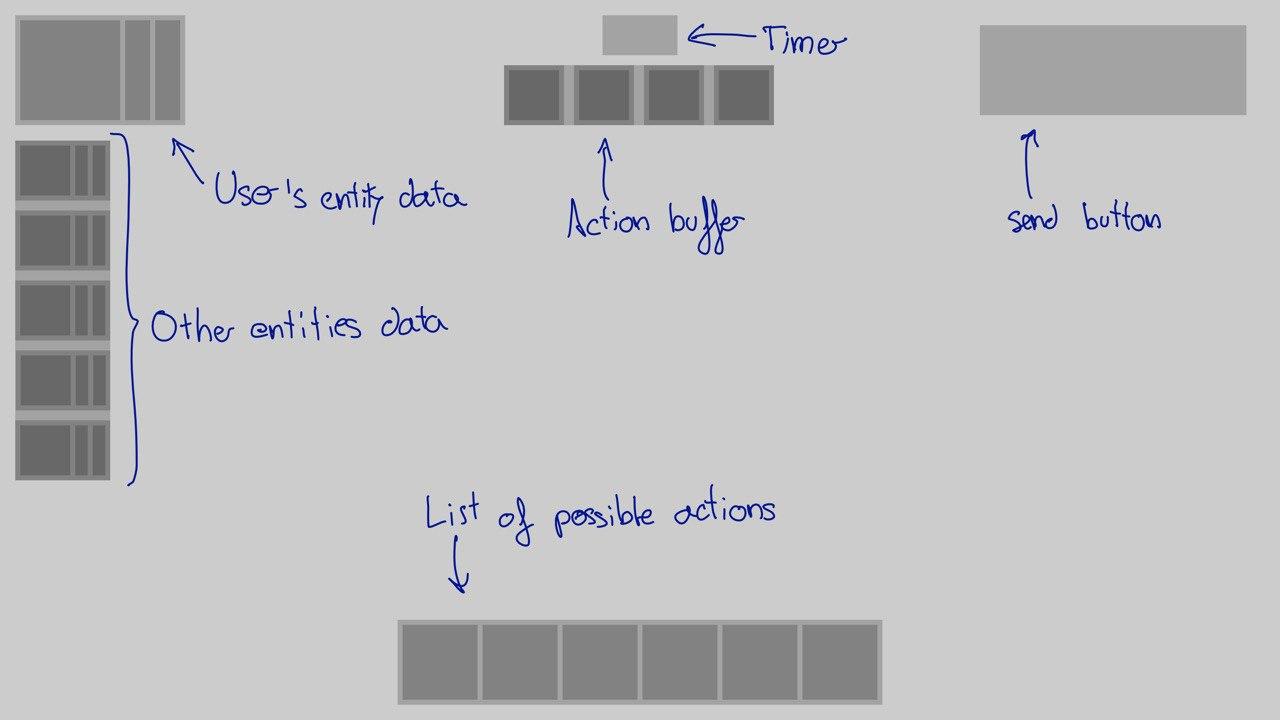 Timer
User's entity data
Action buffer
send button
Other entities data
List of possible actions